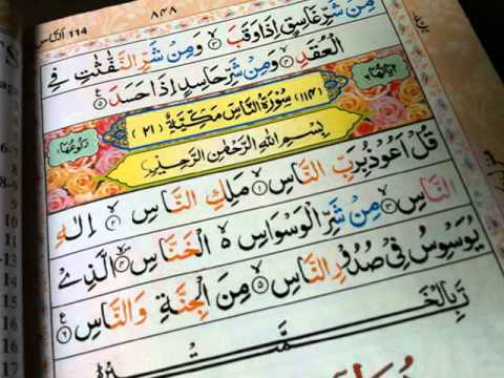 الناس ١١٤
٨٤٨
مِنْ شَرِّ غَاسِقٍ اِذَا وَقَبَ ۙ﴿٣﴾ وَمِنْ شَرِّ النَّفّٰثٰتِ فِی
الْعُقَدِ ۙ﴿٤﴾ وَمِنْ شَرِّ حَاسِدٍ اِذَا حَسَدَ ﴿٥﴾
(١١٤) سُوْرَةُ النَّاسِ مَكِّيَّةٌ (٢١)
رکوعها
بِسْمِ اللّٰهِ الرَّحْمٰنِ الرَّحِيْمِ
قُلْ اَعُوْذُ بِرَبِّ النَّاسِ ۙ﴿١﴾ مَلِكِ النَّاسِ ۙ﴿٢﴾ اِلٰهِ
النَّاسِ ۙ﴿٣﴾ مِنْ شَرِّ الْوَسْوَاسِ ۙ۬ الْخَنَّاسِ ۙ﴿٤﴾ الَّذِیْ
یُوَسْوِسُ فِیْ صُدُوْرِ النَّاسِ ۙ﴿٥﴾ مِنَ الْجِنَّةِ وَالنَّاسِ ﴿٦﴾
تَمَّتْ بِالْخَیْرِ